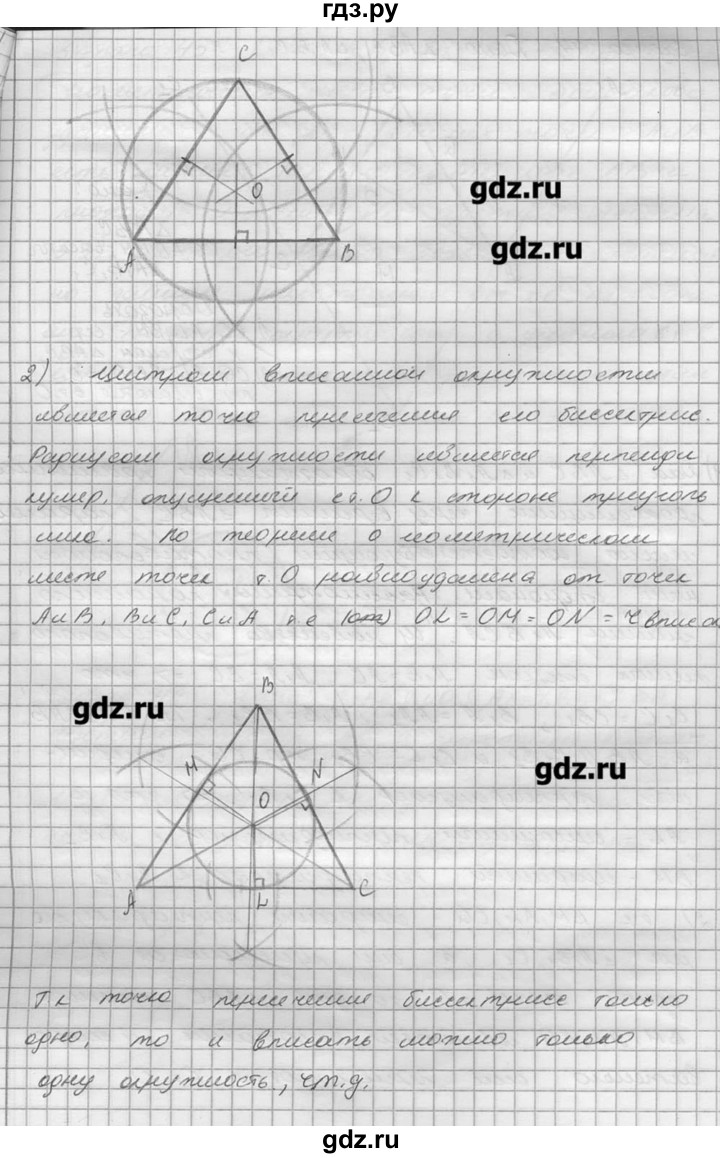 гдз.ру
C
O
gdz.ru
gdz.ru
A
B
2) Центром вписанной окружности
является точка пересечения его биссектрис.
Радиусом окружности является перпенди
куляр, опущенный с т. O к стороне треуголь
ника. По теореме о геометрическом
месте точек т. O равноудалена от точек
A и B, B и C, C и A т.е OL = OM = ON = r впис
B
gdz.ru
M
N
O
gdz.ru
A
L
C
Т к точка пересечения биссектрисс только
одна, то и вписать можно только
одну окружность, чт.д.
gdz.ru